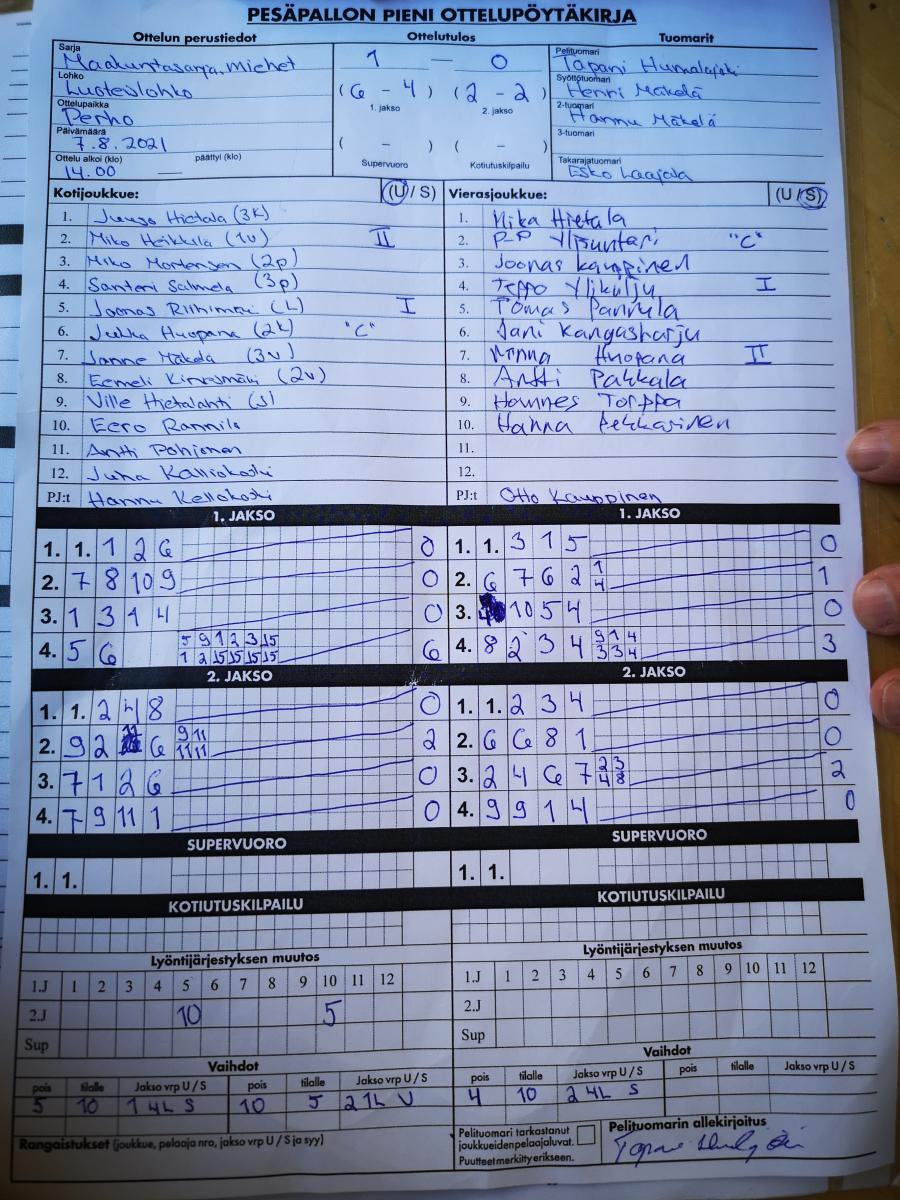 PESÄPALLON PIENI OTTELUPÖYTÄKIRJA
Ottelun perustiedot
Sarja
Maakuntasarja, miehet
Lohko
Luoteislohko
Ottelupaikka
Perho
Päivämäärä
7.8.2021
Ottelu alkoi (klo) päättyi (klo)
14.00 —
Ottelutulos
1 — 0
( 6 - 4 ) ( 2 - 2 )
1. jakso 2. jakso
( - ) ( - )
Supervuoro Kotiutuskilpailu
Tuomarit
Pelituomari
Tapani
Syöttötuomari
Henri Mäkelä
2-tuomari
Hannu Mäkelä
3-tuomari
Takarajatuomari
Esko Laajala
Kotijoukkue: (U / S)
1. Juuso Hietala (3k)
2. Miko Heikkilä (1v) II
3. Miko Mortensen (2p)
4. Santeri Salmela (3p)
5. Joonas Riihimäki (L) I
6. Jukka Huopana (2k) "C"
7. Janne Mäkelä (3v)
8. Eemeli (2v)
9. Ville Hietalahti (s)
10. Eero Rannila
11. Antti Pohjonen
12. Juha Kalliokoski
PJ:t Hannu Kellokoski
Vierasjoukkue: (U / S)
1. Mika Hietala
2. P-P Ylisuntari "C"
3. Joonas Kauppinen
4. Teppo Ylikulju I
5. Tomas Pannula
6. Jani Kangasharju
7. Minna Huopana II
8. Antti Pakkala
9. Hannes Torppa
10. Hanna Pekkarinen
11.
12.
PJ:t Otto Kauppinen
1. JAKSO
1. 1. 1 2 6 0
2. 7 8 10 9 0
3. 1 3 1 4 0
4. 5 6 5 9 1 2 3 15 6
1 2 15 15 15 15
1. JAKSO
1. 1. 3 1 5 0
2. 6 7 6 2 1 1
4
3. 10 5 4 0
4. 8 2 3 4 9 1 4 3
3 3 4
2. JAKSO
1. 1. 2 4 8 0
2. 9 2 11 6 9 11 2
11 11
3. 7 1 2 6 0
4. 7 9 11 1 0
2. JAKSO
1. 1. 2 3 4 0
2. 6 6 8 1 0
3. 2 4 6 7 2 3 2
4 8
4. 9 9 1 4 0
SUPERVUORO
1. 1.
SUPERVUORO
1. 1.
KOTIUTUSKILPAILU
KOTIUTUSKILPAILU
Lyöntijärjestyksen muutos
1.J 1 2 3 4 5 6 7 8 9 10 11 12
2.J 10 5
Sup
Lyöntijärjestyksen muutos
1.J 1 2 3 4 5 6 7 8 9 10 11 12
2.J
Sup
Vaihdot
pois tilalle Jakso vrp U / S pois tilalle Jakso vrp U / S
5 10 1 4L S 10 5 2 1L U
Vaihdot
pois tilalle Jakso vrp U / S pois tilalle Jakso vrp U / S
4 10 2 4L S
Rangaistukset (joukkue, pelaaja nro, jakso vrp U / S ja syy)
Pelituomari tarkastanut
joukkueidenpelaajaluvat.
Puutteet merkitty erikseen.
Pelituomarin allekirjoitus